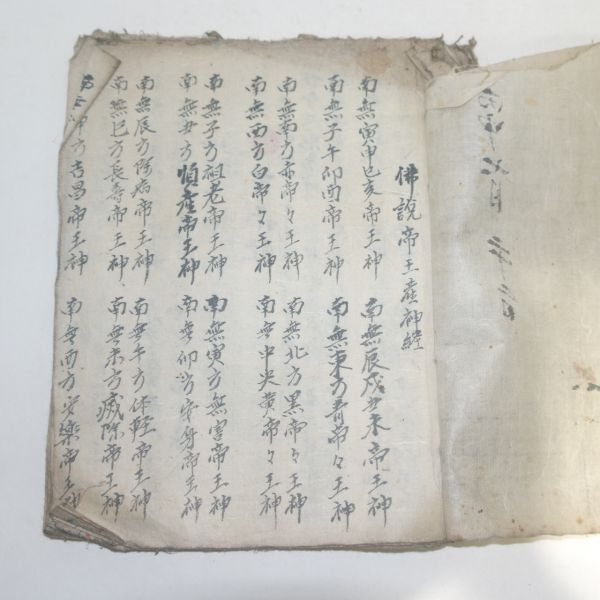 佛說帝王産神經
南無寅申巳亥帝王神 南無辰戌丑未帝王神
南無子午卯酉帝王神 南無東方青帝々王神
南無南方赤帝々王神 南無北方黑帝々王神
南無西方白帝々王神 南無中央黃帝々王神
南無子方祖老帝王神 南無寅方無害帝王神
南無丑方順産帝王神 南無卯方安身帝王神
南無辰方除病帝王神 南無午方体輕帝王神
南無巳方長壽帝王神 南無未方滅除帝王神
南無申方吉昌帝王神 南無酉方安樂帝王神